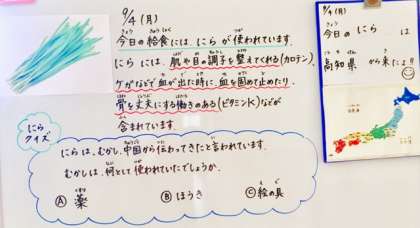 9/4(月)
今日の給食には、にらが使われています。
にらには、肌や目の調子を整えてくれる(カロテン)、
ケガなどで血が出た時に、血を固めて止めたり、
骨を丈夫にする働きのある(ビタミンK)などが
含まれています。
にら
クイズ
にらは、むかし、中国から伝わってきたと言われています。
むかしは、何として使われていたでしょうか。
Ⓐ 薬 Ⓑ ほうき Ⓒ 絵の具
9/4(月)
今日の にら は
高知県 から来たよ!!